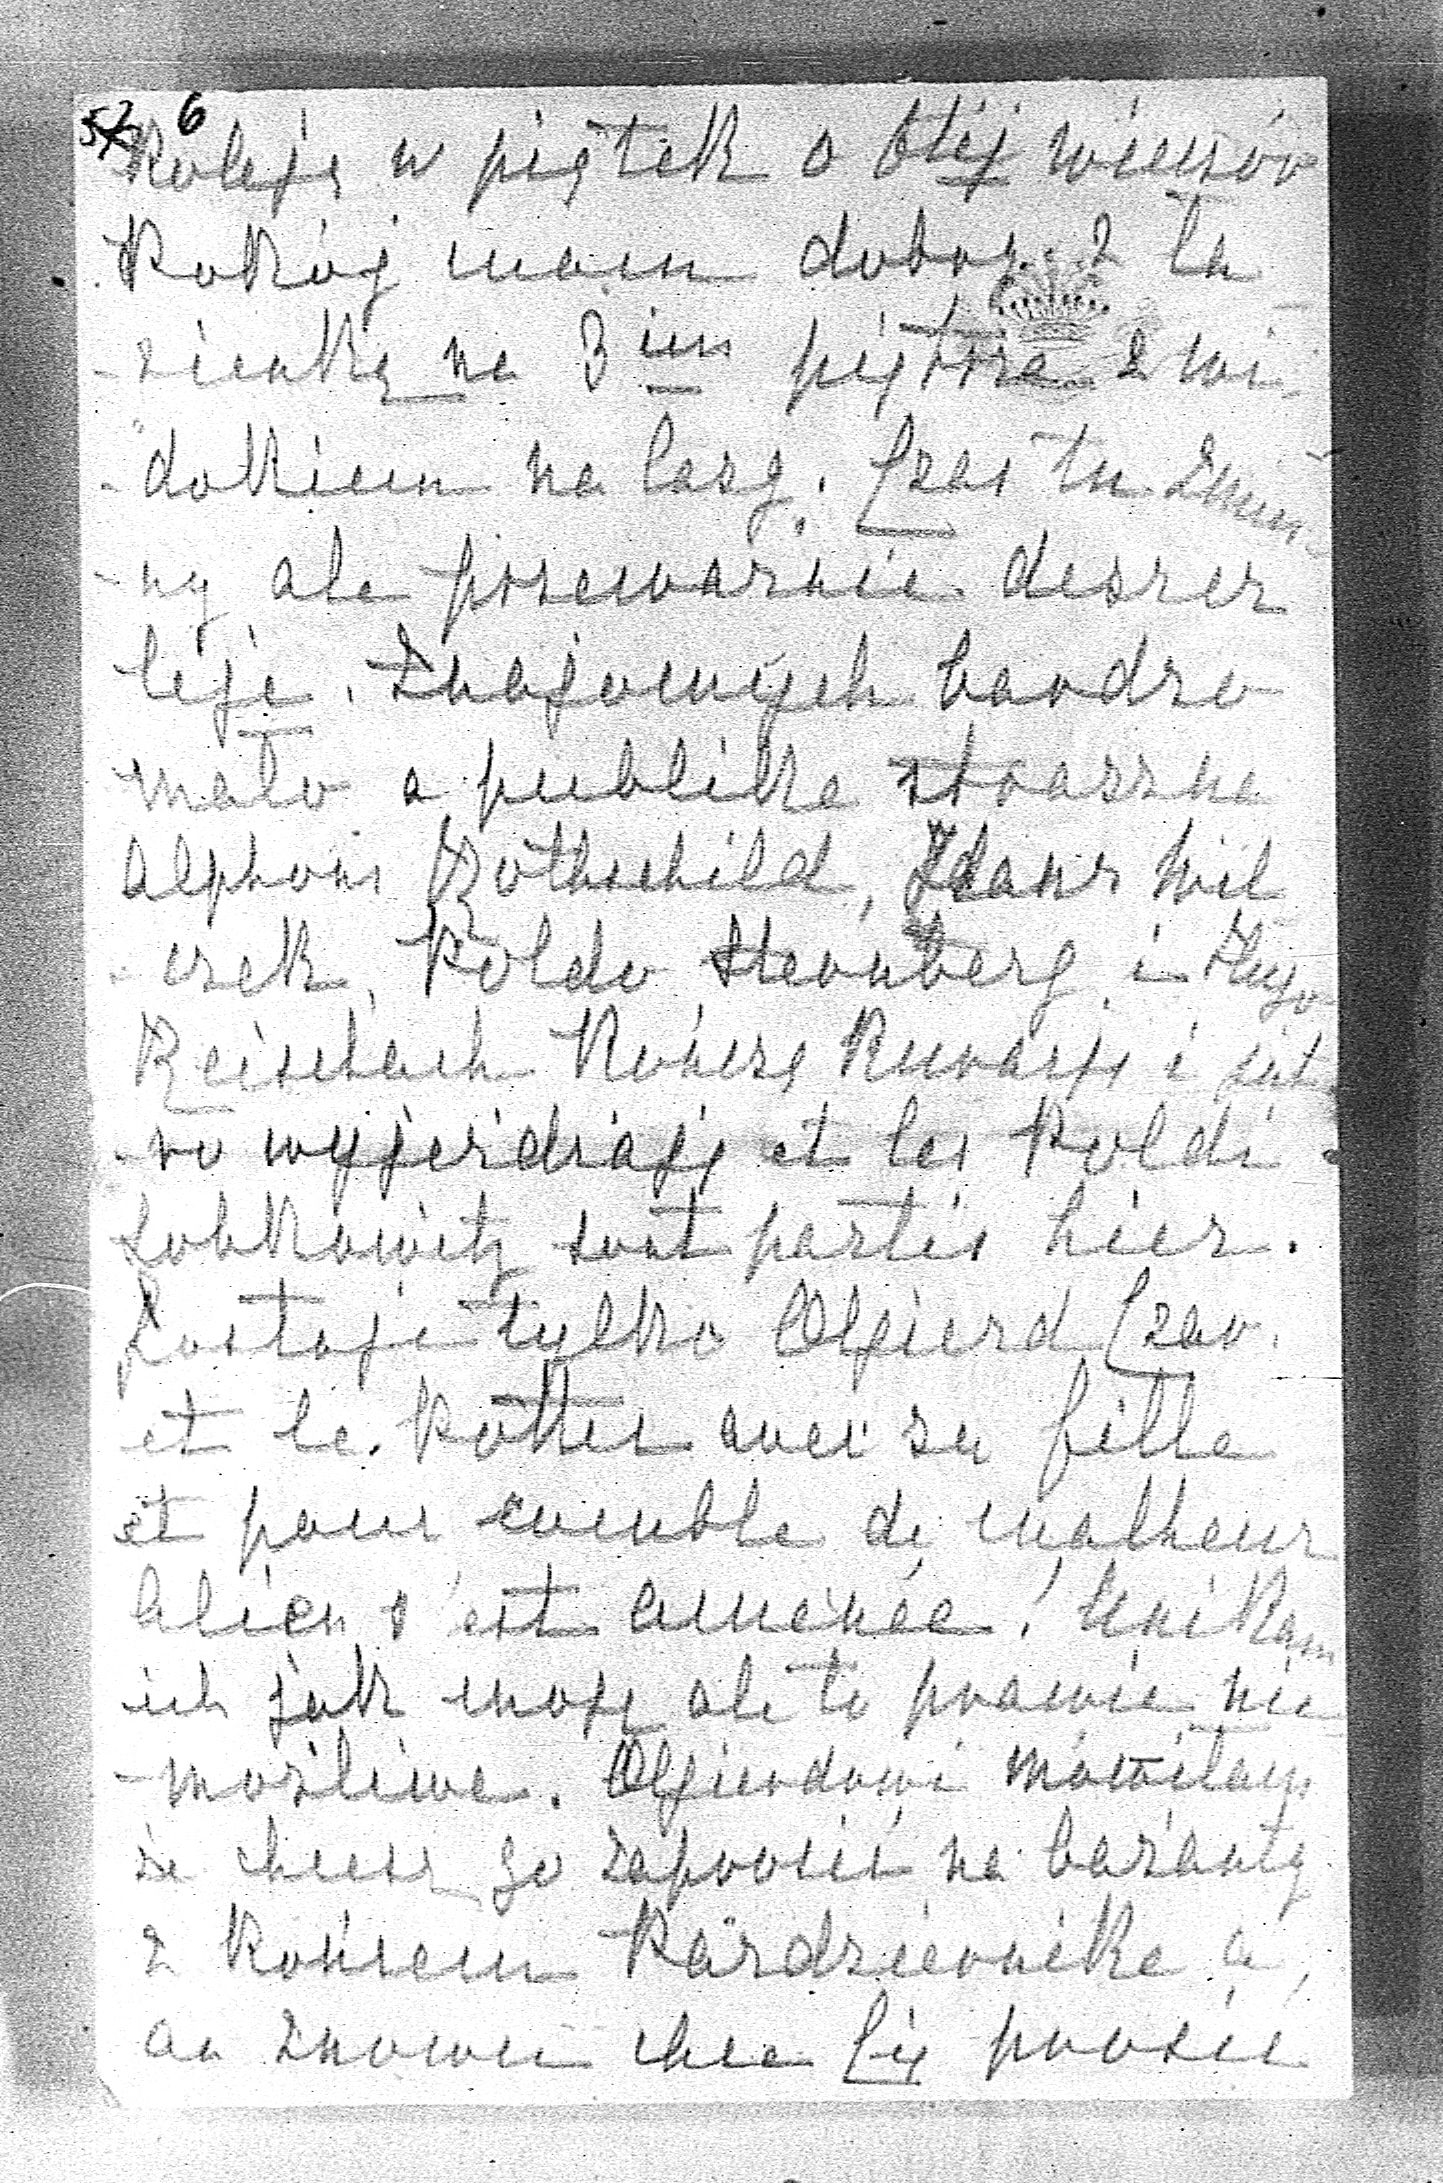 6
Koleją w piątek o 6téj wieczór
Pokój mam dobry z ła
-zienką na 3im piętrze z wi
-dokiem na lasy. Czas tu zmien
-ny ale przeważnie deszcz
leje. Znajomych bardzo
mało a publika straszna
Alphons Rothschild, Hans Wil
-czek, Poldo Sternberg i Hugo
Reischach kończą kuracją i jut
-ro wyjeżdżają et les Poldi
Lobkowitz sont partis hier.
Zostaje tylko Olgierd Czar.
et le Potter avec sa fille
et pour comble de malheur
Alice s'est amenée! Unikam
ich jak mogę ale to prawie nie
-możliwe. Olgierdowi mówiłam
że chcesz go zaprosić na bażanty
z końcem Października a
on znowu chce Cię prosić